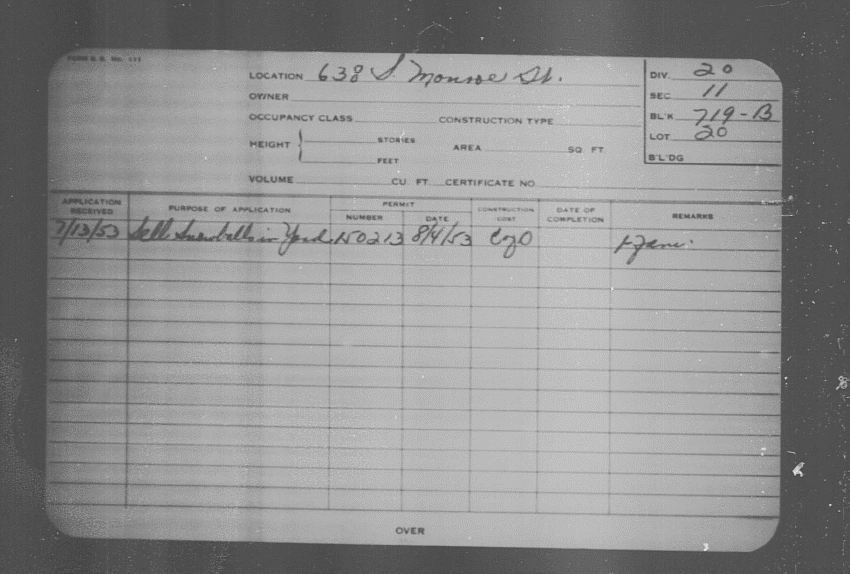 FORM B.B. No. 111
LOCATION 638 S. Monroe St.
OWNER
OCCUPANCY CLASS CONSTRUCTION TYPE
HEIGHT STORIES FEET AREA SQ. FT.
VOLUME CU. FT. CERTIFICATE NO.
DIV. 20
SEC. 11
BL'K 719-B
LOT 20
B'L'DG
APPLICATION RECEIVED PURPOSE OF APPLICATION PERMIT NUMBER DATE CONSTRUCTION COST DATE OF COMPLETION REMARKS
7/13/53 Sell Snowballs in Yard N50213 8/4/53
OVER